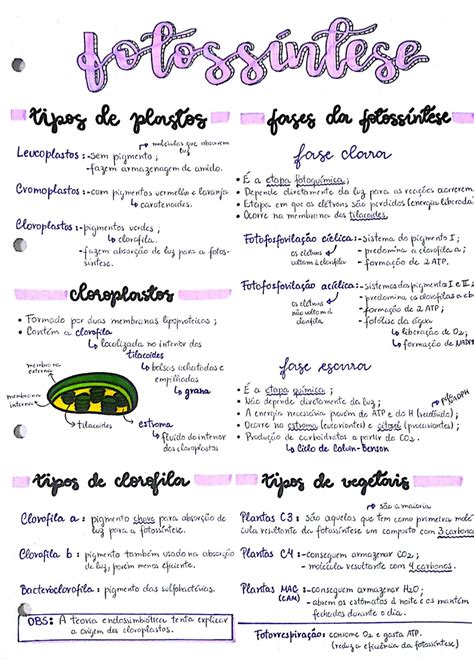 fotossíntese
tipos de plastos
moléculas que absorvem
luz
Leucoplastos: -sem pigmento;
-fazem armazenagem de amido.
Cromoplastos: -com pigmentos vermelho e laranja
carotenoides.
Cloroplastos: -pigmentos verdes;
clorofila.
-fazem absorção de luz para a fotos-
síntese.
cloroplastos
• Formado por duas membranas lipoproteicas;
• Contém a clorofila
localizada no interior dos
tilacoides
bolsas achatadas e
empilhadas
grana
membrana
externa
membrana
interna
tilacoides
estroma
fluido do interior
dos cloroplastos
tipos de clorofila
Clorofila a: pigmento chave para absorção de
luz para a fotossíntese.
Clorofila b: pigmento também usado na absorção
de luz, porém menos eficiente.
Bacterioclorofila: pigmento das sulfobactérias.
OBS: A teoria endossimbiótica tenta explicar
a origem dos cloroplastos.
fases da fotossíntese
fase clara
• É a etapa fotoquímica;
• Depende diretamente da luz para as reações ocorrerem
• Etapa em que os elétrons são perdidos (energia liberada)
• Ocorre na membrana dos tilacoides.
Fotofosforilação cíclica: -sistema do pigmento I;
os elétrons
voltam à clorofila
-predomina a clorofila a;
-formação de 2 ATP.
Fotofosforilação acíclica: -sistemas do pigmentos I e
os elétrons
não voltam à
clorofila
-predomina as clorofilas a e b
-formação de 2 ATP;
-fotólise da água
liberação de O2;
formação de NADPH
fase escura
• É a etapa química;
• Não depende diretamente da luz;
• A energia necessária provém do ATP e do H (reduzido);
NADPH
• Ocorre no estroma (eucariontes) e citosol (procariontes);
• Produção de carboidratos a partir do CO2.
Ciclo de Calvin-Benson
tipos de vegetais
são a maioria
Plantas C3: são aquelas que tem como primeira molé
cula resultante da fotossíntese um composto com 3 carbonos
Plantas C4: -conseguem armazenar CO2;
-molécula resultante com 4 carbonos.
Plantas MAC
(CAM)
-conseguem armazenar H2O;
-abrem os estômatos à noite e os mantém
fechados durante o dia.
Fotorrespiração: consome O2 e gasta ATP.
(reduz a eficiência da fotossíntese)